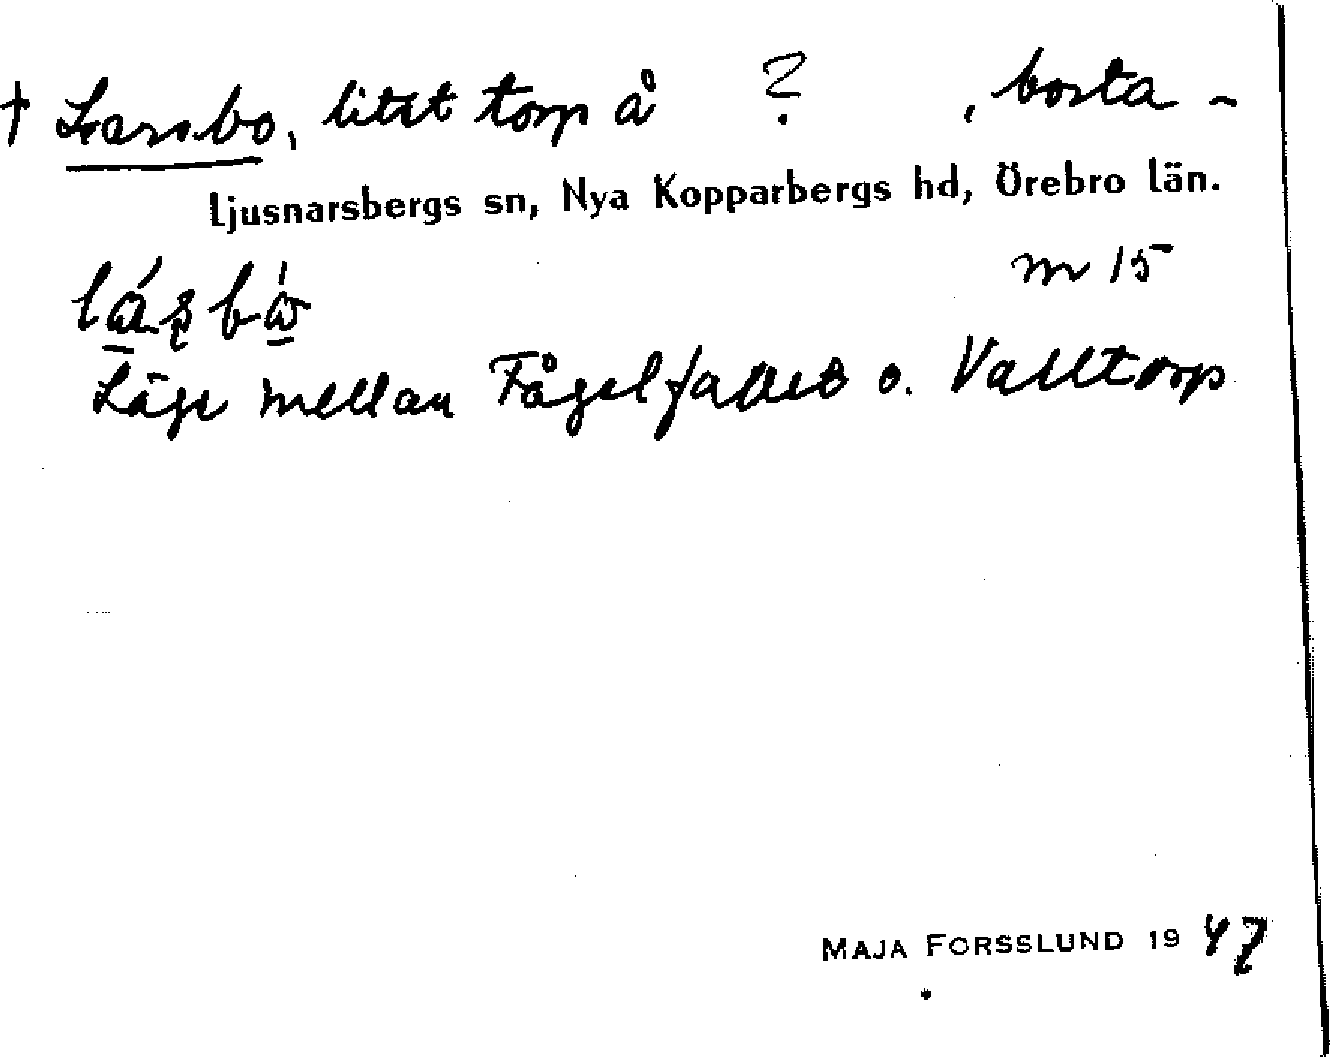 † Larsbo, litet torp å ? , borta -
Ljusnarsbergs sn, Nya Kopparbergs hd, Örebro län.
m 15
Läge mellan Fågelfallet o. Valltorp
MAJA FORSSLUND 1947